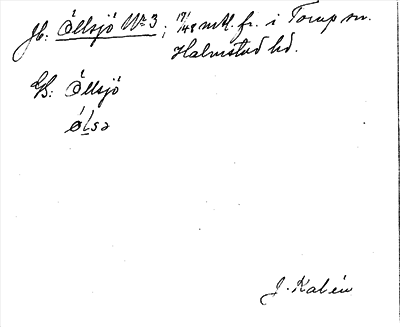 Jb: Öllsjö No 3; 19/48 mtl. fr. i Torup sn.
Halmstad hd.
Us: Öllsjö
ølsə
J. Kalén